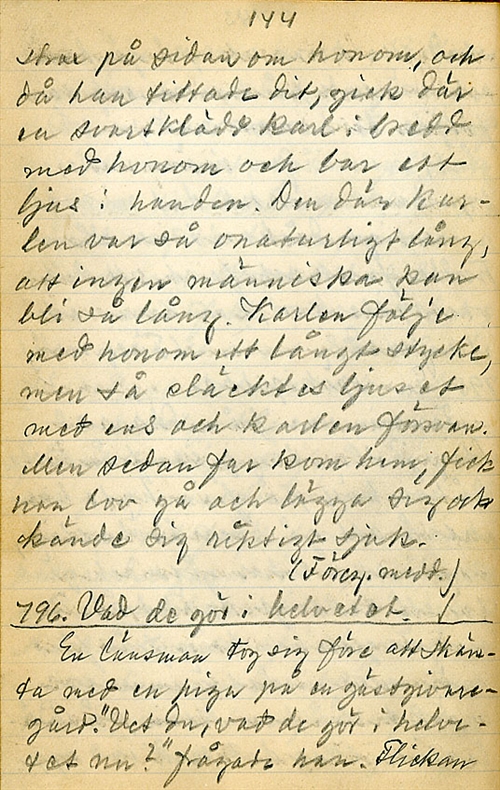 144
strax på sidan om honom, och
då han tittade dit, gick där
en svartklädd karl i bredd
med honom och bar ett
ljus i handen. Den där kar-
len var så onaturligt lång,
att ingen människa kan
bli så lång. Karlen följe
med honom ett långt stycke,
men så släcktes ljuset
med ens och karlen försvan.
Men sedan far kom hem, fick
han lov gå och lägga sig, och
kände sig riktigt sjuk.
(Föreg. medd.)
796. Vad de gör i helvetet.
En länsman tog sig före att skäm-
ta med en piga på en gästgivare-
gård. "Vet du, vad de gör i helve-
tet nu?" frågade han. Flickan